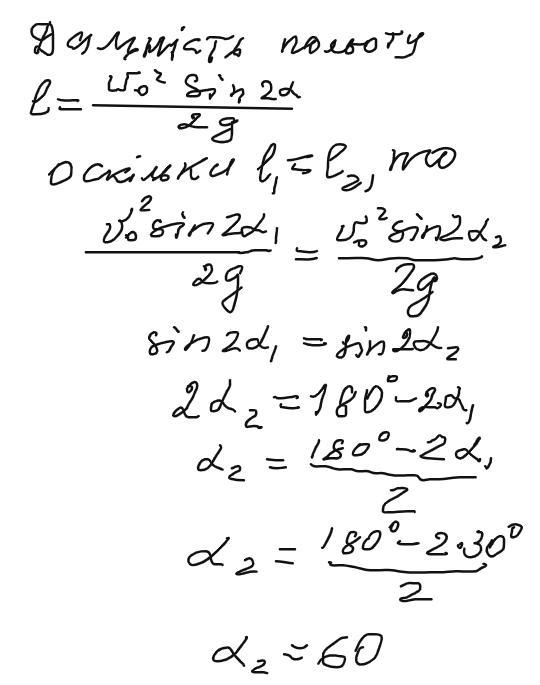 Дальність польоту
l = v₀² sin 2α / 2g
оскільки l₁ = l₂, то
v₀² sin 2α₁ / 2g = v₀² sin 2α₂ / 2g
sin 2α₁ = sin 2α₂
2α₂ = 180° - 2α₁
α₂ = 180° - 2α₁ / 2
α₂ = 180° - 2·30° / 2
α₂ = 60